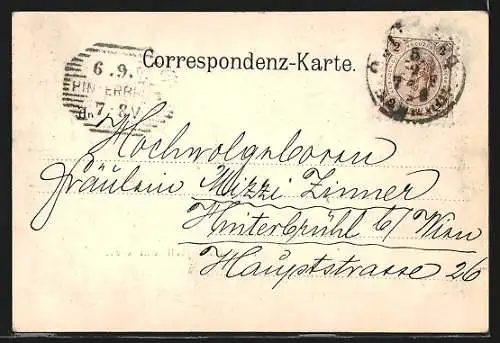 Correspondenz-Karte.
6.9.
HINTERBR
7-8V
Hochwolgeboren
Fräulein Mizzi Zinner
Hinterbrühl b/ Wien
Hauptstrasse 26